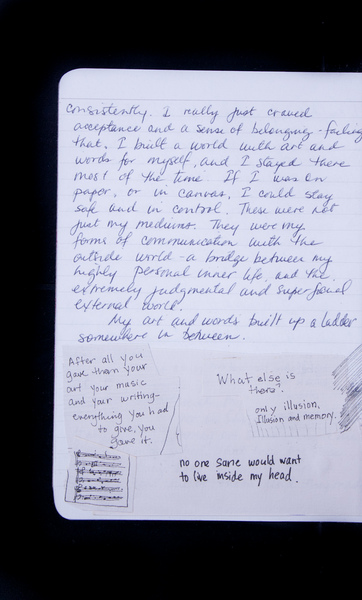 consistently. I really just craved
acceptance and a sense of belonging - failing
that, I built a world with art and
words for myself, and I stayed there
most of the time. If I was on
paper, or in canvas, I could stay
safe and in control. These were not
just my mediums. They were my
forms of communication with the
outside world - a bridge between my
highly personal inner life, and the
extremely judgmental and superficial
external world.
My art and words built up a ladder
somewhere in between.
After all you
gave them your
art your music
and your writing-
everything you had
to give, you
gave it.
What else is
there?
only illusion.
Illusion and memory.
no one sane would want
to live inside my head.